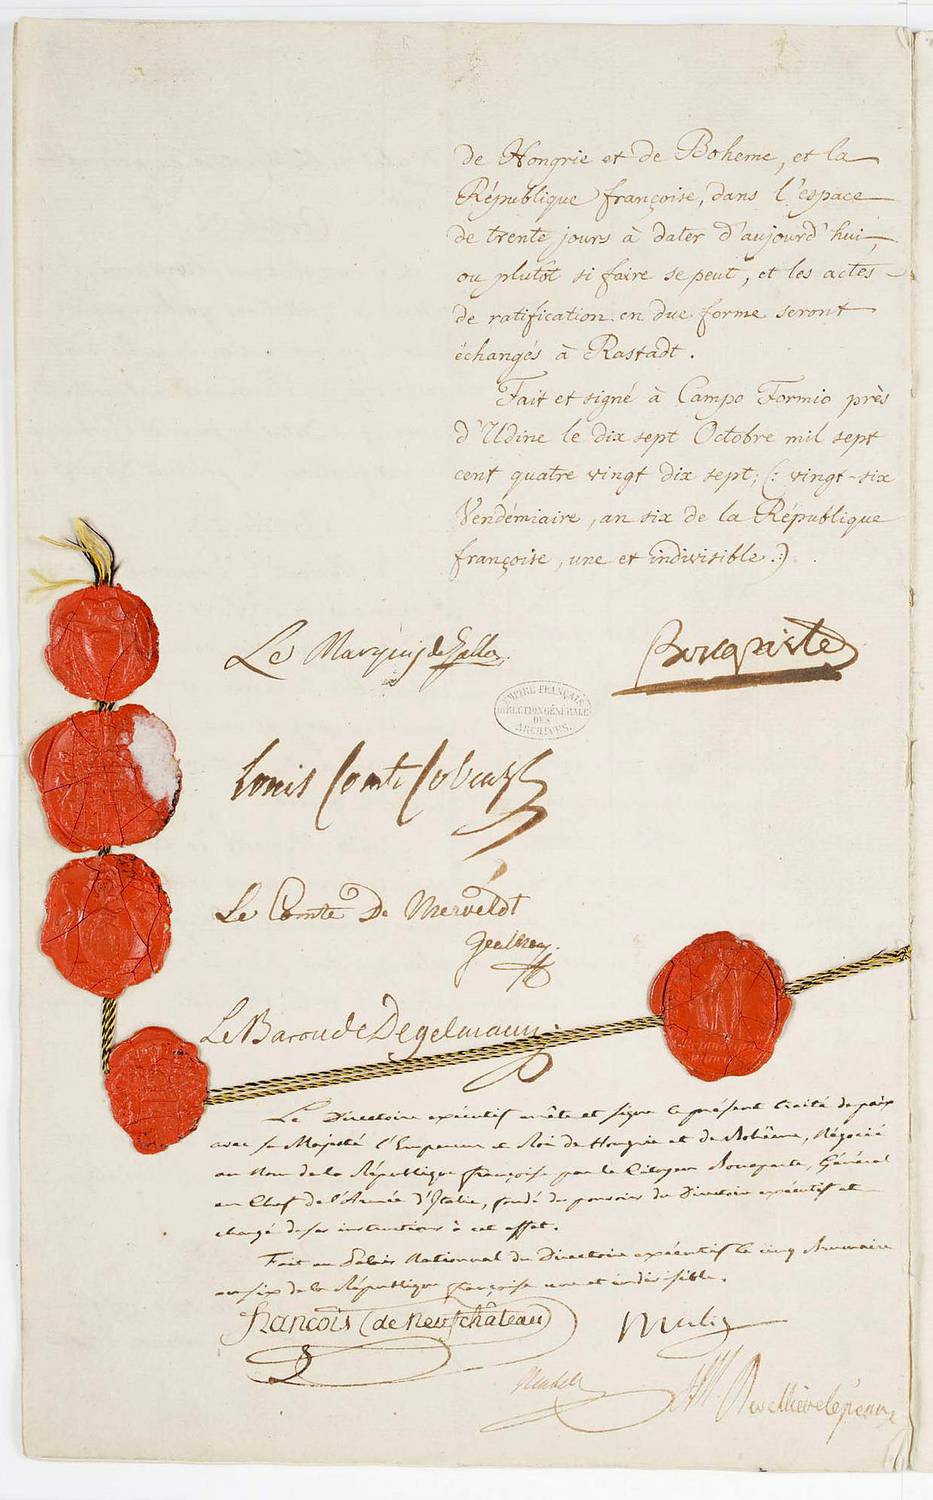 de Hongrie et de Boheme, et la
République françoise, dans l'espace
de trente jours à dater d'aujourd'hui,
ou plutôt si faire se peut, et les actes
de ratification en due forme seront
échangés à Rastadt.
Fait et signé à Campo Formio près
d'Udine le dix sept Octobre mil sept
cent quatre vingt dix sept; (: vingt-six
Vendémiaire, an six de la République
françoise, une et indivisible.:)
Le Marquis de Gallo
Bonaparte
EMPIRE FRANÇAIS
DIRECTION GÉNÉRALE
DES
ARCHIVES.
Louis Comte Cobenzl
Le Comte De Merveldt
Le Baron de Degelmann
Le Directoire exécutif arrête et signe le présent traité de paix
avec sa Majesté l'Empereur et Roi de Hongrie et de Bohême, négocié
au nom de la République françoise par le Citoyen Bonaparte, Général
en Chef de l'Armée d'Italie, fondé de pouvoirs du Directoire exécutif et
chargé de ses instructions à cet effet.
Fait au Palais National du Directoire exécutif le cinq Brumaire
an six de la République françoise une et indivisible.
François (de Neufchâteau)
Merlin